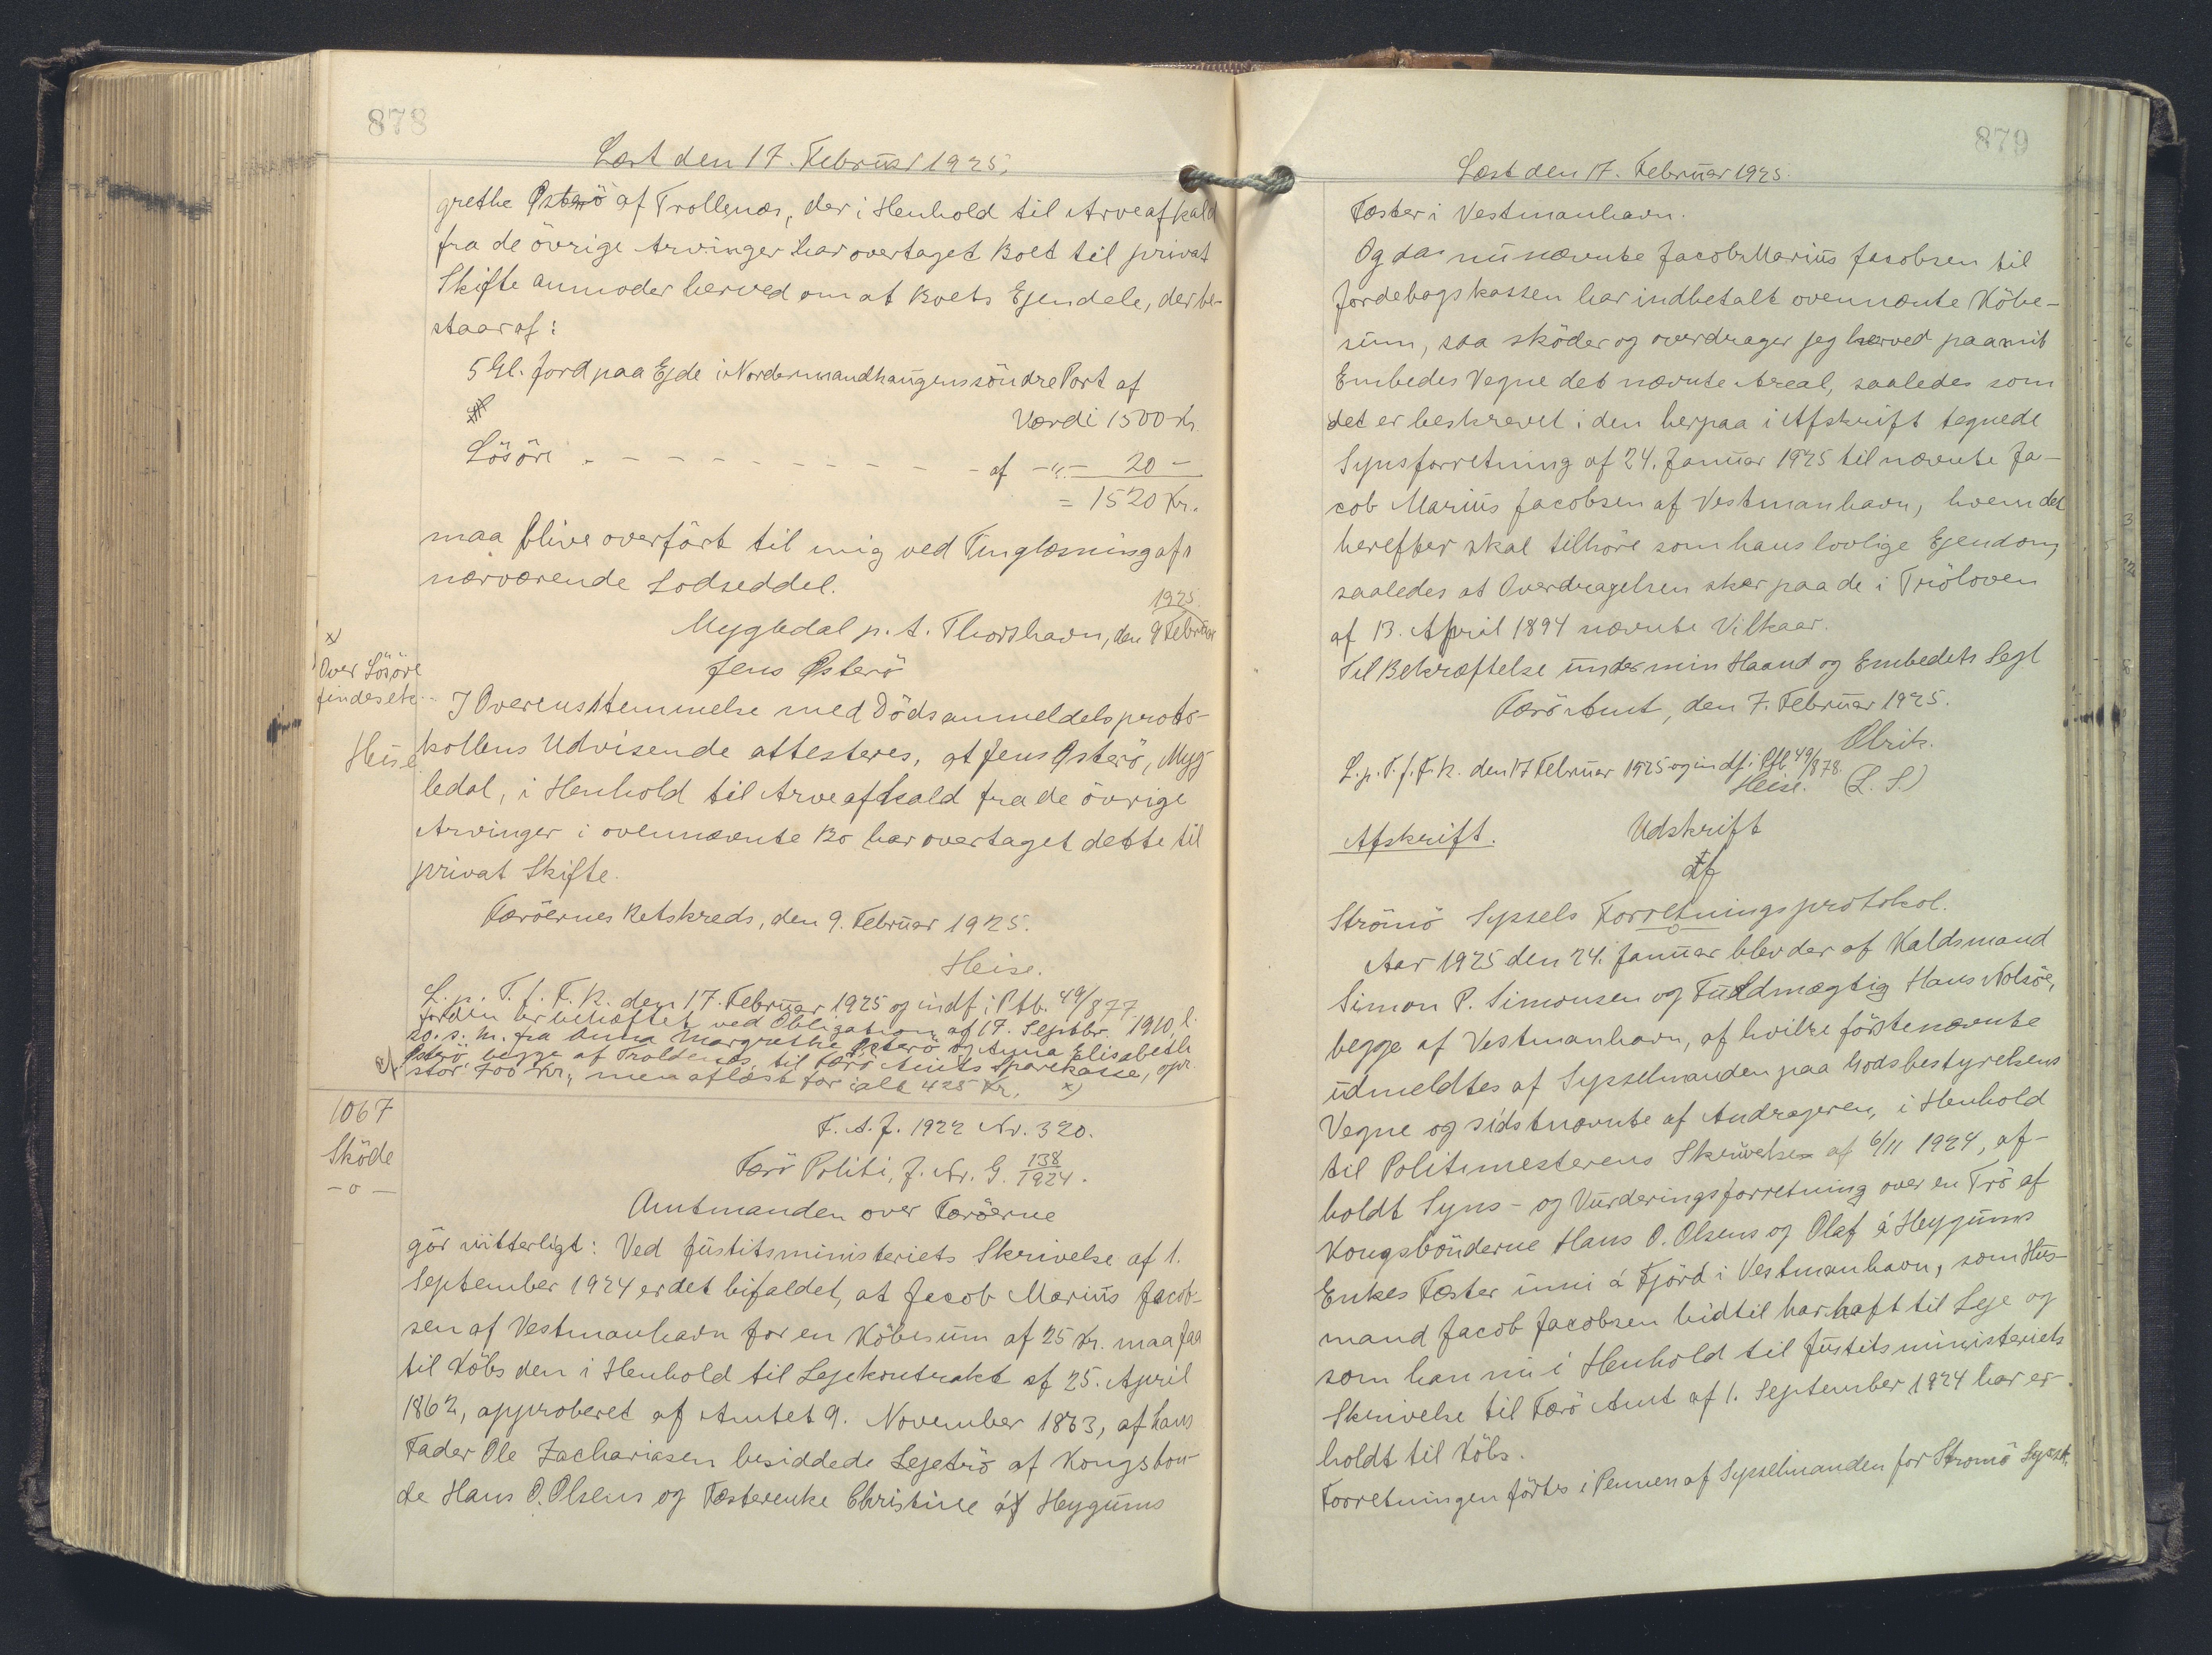 878
Læst den 17. Februar 1925.
grethe Østerö af Trollenæs, der i Henhold til Arveafkald
fra de övrige Arvinger har overtaget Boet til privat
Skifte anmoder herved om at Boets Ejendele, der be-
staar af:
5 Gl. Jord paa Ejde i Nordermandhaugens söndre Part af
Værdi 1500 Kr.
Lösöre - - - - - - - - - - af - " - 20 -
= 1520 Kr.
maa blive overfört til mig ved Tinglæsning af
nærværende Lodseddel.
Mygledal p. t. Thorshavn, den 9 Februar 1925.
Jens Østerö
x)
Over Lösöre
findes etc.
Heise
I Overensstemmelse med Dödsanmeldelsproto-
kollens Udvisende attesteres, at Jens Østerö, Myg-
ledal, i Henhold til Arveafkald fra de övrige
Arvinger i ovennævnte Bo har overtaget dette til
privat Skifte.
Færöernes Retskreds, den 9. Februar 1925.
Heise.
L. p. T. f. F. R. den 17. Februar 1925 og indf. i Ptb. 49/877.
Jorden er behæftet ved Obligation af 17. Septbr. 1910, l.
20. s. M. fra Anna Margrethe Østerö og Anna Elisabeth
Østerö begge af Troldenæs, til Færö Amts Sparekasse, opr.
stor 700 Kr., men aflöst for ialt 425 Kr. x)
1067
Sköde
- o -
F. A. J. 1922 Nr. 320.
Færö Politi, J. Nr. G. 138/1924.
Amtmanden over Færöerne
gör vitterligt: Ved Justitsministeriets Skrivelse af 1.
September 1924 er det bifaldet, at Jacob Marius Jacob-
sen af Vestmanhavn for en Köbesum af 25 Kr. maa faa
til Köbs den i Henhold til Lejekontrakt af 25. April
1862, approberet af Amtet 9. November 1863, af hans
Fader Ole Zachariasen besiddede Lejetrö af Kongsbon-
de Hans O. Olsens og Fæsterenke Christine á Heygums
879
Læst den 17. Februar 1925.
Fæster i Vestmanhavn.
Og da nu nævnte Jacob Marius Jacobsen til
Jordebogskassen har indbetalt ovennævnte Köbe-
sum, saa sköder og overdrager jeg herved paa mit
Embedes Vegne det nævnte Areal, saaledes som
det er beskrevet i den herpaa i Afskrift tegnede
Synsforretning af 24. Januar 1925 til nævnte Ja-
cob Marius Jacobsen af Vestmanhavn, hvem det
herefter skal tilhöre som hans lovlige Ejendom,
saaledes at Overdragelsen sker paa de i Tröloven
af 13. April 1894 nævnte Vilkaar.
Til Bekræftelse under min Haand og Embedets Segl
Færö Amt, den 7. Februar 1925.
Olrik.
(L. S.)
L. p. T. f. F. R. den 17 Februar 1925 og indf. i Ptb. 49/878.
Heise.
Afskrift.
Udskrift
af
Strömö Syssels Forretningsprotokol.
Aar 1925 den 24. Januar blev der af Valdsmand
Simon P. Simonsen og Fuldmægtig Hans Nolsöe,
begge af Vestmanhavn, af hvilke förstnævnte
udmeldtes af Sysselmanden paa Godsbestyrelsens
Vegne og sidstnævnte af Andrageren, i Henhold
til Politimesterens Skrivelse af 6/11 1924, af-
holdt Syns- og Vurderingsforretning over en Trö af
Kongsbönderne Hans O. Olsens og Olaf á Heygums
Enkes Fæster inni á Fjörd i Vestmanhavn, som Hus-
mand Jacob Jacobsen hidtil har haft til Leje og
som han nu i Henhold til Justitsministeriets
Skrivelse til Færö Amt af 1. September 1924 har er-
holdt til Köbs.
Forretningen förtes i Pennen af Sysselmanden for Strömö Syssel.